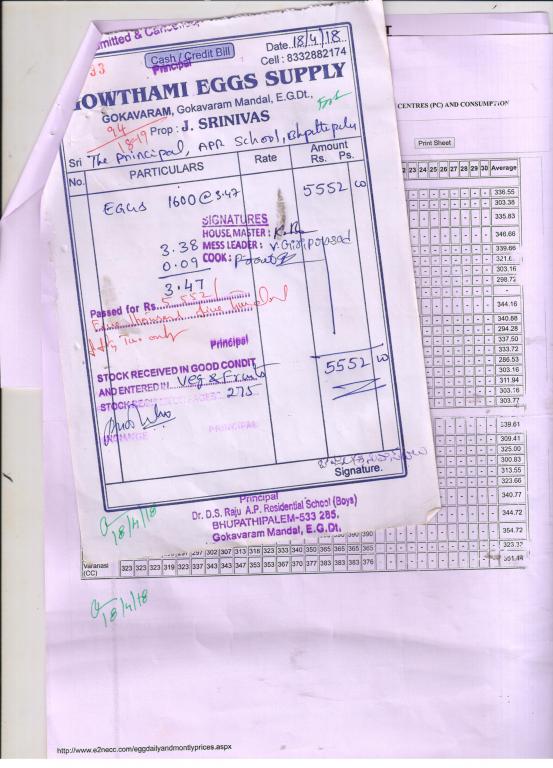 mitted & Cancelled
Cash / Credit Bill
Principal
Date. 18/4/18
Cell : 8332882174
OWTHAMI EGGS SUPPLY
GOKAVARAM, Gokavaram Mandal, E.G.Dt.,
94
18-19
Prop : J. SRINIVAS
Sri The principal, APR School, Bhpathipalem
No. PARTICULARS Rate Amount
Rs. Ps.
EGGS 1600 @ 3.47 5552 00
SIGNATURES
HOUSE MASTER :
MESS LEADER : V. Giriprasad
COOK :
3.38
0.09
3.47
Passed for Rs. 5552/-
Five thousand five hundred
fifty Two only
Principal
STOCK RECEIVED IN GOOD CONDIT
AND ENTERED IN Veg & Fruits
STOCK REGISTER PAGE 275
5552 00
INCHARGE PRINCIPAL
Signature.
Principal
Dr. D.S. Raju A.P. Residential School (Boys)
BHUPATHIPALEM-533 285,
Gokavaram Mandal, E.G.Dt.
18/4/18
18/4/18
CENTRES (PC) AND CONSUMPTION
Print Sheet
23 24 25 26 27 28 29 30 Average
336.55
303.38
335.83
346.66
339.66
303.16
298.72
344.16
340.88
294.28
337.50
333.72
286.53
303.16
311.94
303.16
303.77
339.61
309.41
325.00
300.83
313.55
323.66
340.77
344.72
354.72
323.32
297 297 302 307 313 318 323 333 340 350 365 365 365
Varanasi
(CC) 323 323 323 319 323 337 343 343 347 353 353 357 367 370 377 383 383 376 351.44
http://www.e2necc.com/eggdailyandmontlyprices.aspx